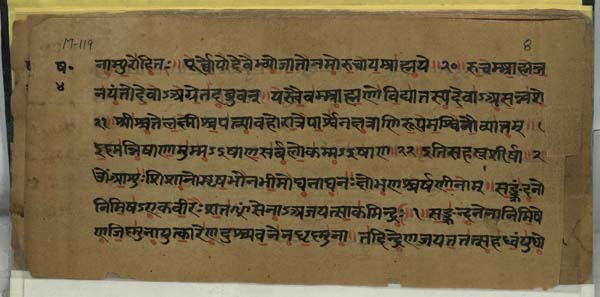 M-119
8
ष॰
४
नाम्पुरोहितः पूर्वोयोदेवेभ्योजातोनमोरुचायब्राह्मये २० रुचम्ब्राह्मञ्ज
नयंतोदेवाऽअग्रेतदब्रुवन् यस्त्वैवम्ब्राह्मणोविद्यात्तस्यदेवाऽअसन्वशे
२१ श्रीश्चतेलक्ष्मीश्चपत्न्यावहोरात्रेपार्श्वेनक्षत्राणिरूपमश्विनौव्यात्तम् ।
इष्णन्निषाणमुम्मऽइषाणसर्वलोकम्मऽइषाण २२ इतिसहस्रशीर्षा २
ॐआशुःशिशानोवृषभोनभीमोघनाघनःक्षोभणश्चर्षणीनाम् सङ्क्रंदनो
निमिषऽएकवीरःशतᳪसेनाऽअजयत्साकमिन्द्रः १ सङ्क्रन्दनेनानिमिषे
णजिष्णुनायुत्कारेणदुश्च्यवनेनधृष्णुना तदिन्द्रेणजयततत्सहध्वंयुधो